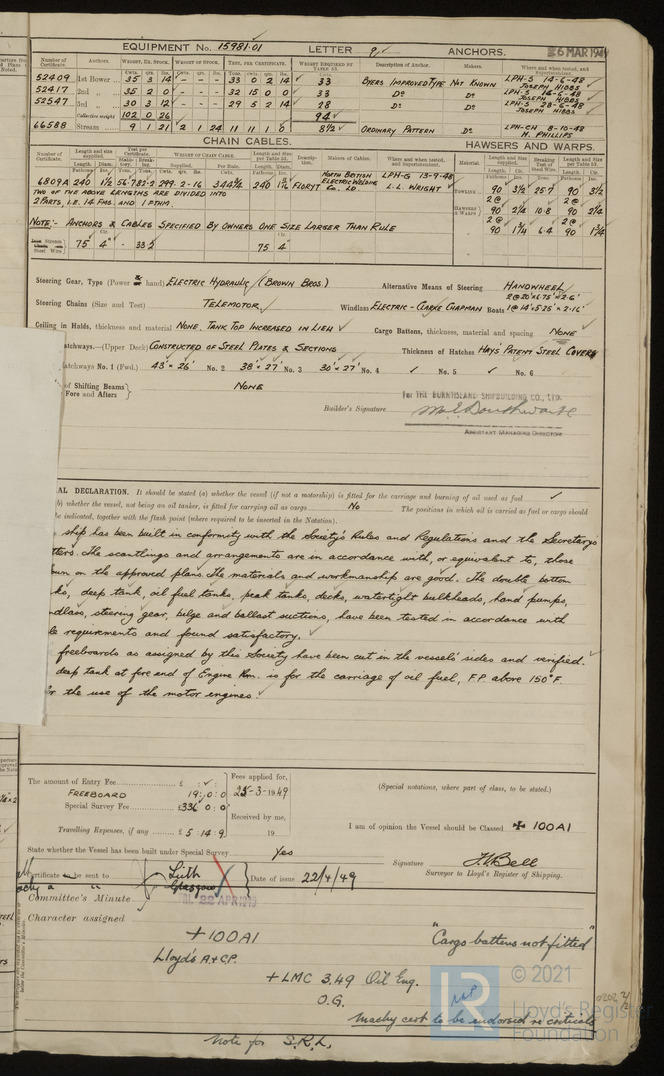 EQUIPMENT No. 15981.01 LETTER ANCHORS. 26 MAR 194
Number of Certificate. Anchors. WEIGHT, EX. STOCK. WEIGHT OF STOCK. TEST, PER CERTIFICATE. WEIGHT REQUIRED BY TABLE 53. Description of Anchor. Makers. Where and when tested, and Superintendent.
Cwts. qrs. lbs. Cwts. qrs. lbs. Tons. cwts. qrs. lbs. Cwts.
52409 1st Bower 35 3 14 - - - 33 0 2 14 33 BYERS IMPROVED TYPE NOT KNOWN LPH-S 14-6-48 JOSEPH HIBBS
52417 2nd " 35 2 0 - - - 32 15 0 0 33 Do Do LPH-S 16-6-48 JOSEPH HIBBS
52547 3rd " 30 3 12 - - - 29 5 2 14 28 Do Do LPH-S 28-6-48 JOSEPH HIBBS
Collective weight 102 0 26 94
66588 Stream 9 1 21 2 1 24 11 11 1 0 8½ ORDINARY PATTERN Do LPH-CH 8-10-48 H. PHILLIPS
CHAIN CABLES. HAWSERS AND WARPS.
Number of Certificate. Length and size supplied. Test per Certificate. WEIGHT OF CHAIN CABLE. Length and size per Table 53. Description. Makers of Cables. Where and when tested, and Superintendent. Material. Length and Size supplied. Breaking Test of Steel Wire. Length and Size per Table 53.
6809A 240 299-2-16 344¾ 240 NORTH BRITISH ELECTRIC WELDING CO. LD. LPH-G 13-9-48 L.L. WRIGHT
TWO OF THE ABOVE LENGTHS ARE DIVIDED INTO
2 PARTS, I.E. 14 FMS. AND 1 FTHM.
TOWLINE 90 3½ 25.7 90 3½
2 @ 2 @
HAWSERS & WARPS 90 2¼ 10.8 90 2¼
2 @ 2 @
90 1¾ 6.4 90 1¾
NOTE:- ANCHORS & CABLES SPECIFIED BY OWNERS ONE SIZE LARGER THAN RULE
Steel Wire 75 4" - 33.2 75 4
Steering Gear, Type (Power or hand) ELECTRIC HYDRAULIC (BROWN BROS.) Alternative Means of Steering HANDWHEEL
Steering Chains (Size and Test) TELEMOTOR Windlass ELECTRIC - CLARKE CHAPMAN Boats 2 @ 20'x6.75'x2.6' 1 @ 14'x5.25'x2.16'
Ceiling in Holds, thickness and material NONE. TANK TOP INCREASED IN LIEU Cargo Battens, thickness, material and spacing NONE
atchways.—(Upper Deck) CONSTRUCTED OF STEEL PLATES & SECTIONS Thickness of Hatches HAY'S PATENT STEEL COVERS
atchways No. 1 (Fwd.) 43' x 26' No. 2 38' x 27' No. 3 30' x 27' No. 4 No. 5 No. 6
of Shifting Beams
Fore and Afters } NONE
For THE BURNTISLAND SHIPBUILDING CO., LTD.
Builder's Signature
ASSISTANT MANAGING DIRECTOR
AL DECLARATION. It should be stated (a) whether the vessel (if not a motorship) is fitted for the carriage and burning of oil used as fuel
b) whether the vessel, not being an oil tanker, is fitted for carrying oil as cargo No The positions in which oil is carried as fuel or cargo should
be indicated, together with the flash point (where required to be inserted in the Notation).
ship has been built in conformity with the Society's Rules and Regulations and the Secretary's
tters. The scantlings and arrangements are in accordance with, or equivalent to, those
own on the approved plans. The materials and workmanship are good. The double bottom
ks, deep tank, oil fuel tanks, peak tanks, decks, watertight bulkheads, hand pumps,
ndlass, steering gear, bilge and ballast suctions, have been tested in accordance with
le requirements and found satisfactory.
freeboards as assigned by this Society have been cut in the vessels' sides and verified.
deep tank at fore end of Engine Rm. is for the carriage of oil fuel, F.P. above 150°F.
or the use of the motor engines.
The amount of Entry Fee £ Fees applied for, (Special notations, where part of class, to be stated.)
FREEBOARD 19 : 0 : 0 25-3-1949
Special Survey Fee £336 0 : 0 Received by me,
Travelling Expenses, if any £ 5 : 14 : 9 19 I am of opinion the Vessel should be Classed ✠ 100A1
State whether the Vessel has been built under Special Survey Yes
Signature J.W. Bell
Surveyor to Lloyd's Register of Shipping.
Certificate to be sent to Leith Glasgow Date of issue 22/4/49
Committee's Minute 22 APR 1949
Character assigned
+100A1 "Cargo battens not fitted"
Lloyd's A+CP.
+ LMC 3.49 Oil Eng.
O.G.
Machy cert to be endorsed re
Note for S.R.L.
© 2021
Lloyd's Register
Foundation